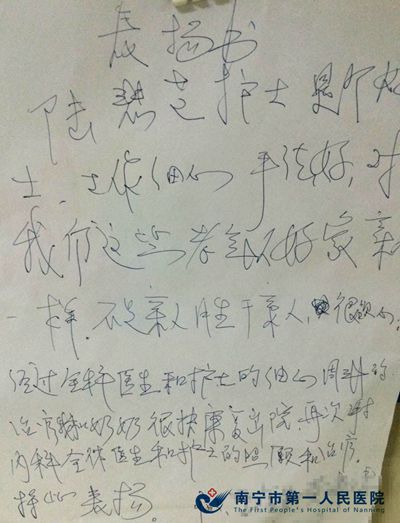 表扬书
陆慧芝护士是个好
士.工作细心手法好,对
我们这些老年人好象亲
一样.不是亲人胜于亲人,很放心.
经过全体医生和护士的细心周到的
治疗我奶奶很快康复出院再次谢
内科全体医生和护士的照顾和治疗.
特此表扬.
南宁市第一人民医院
The First People's Hospital of Nanning